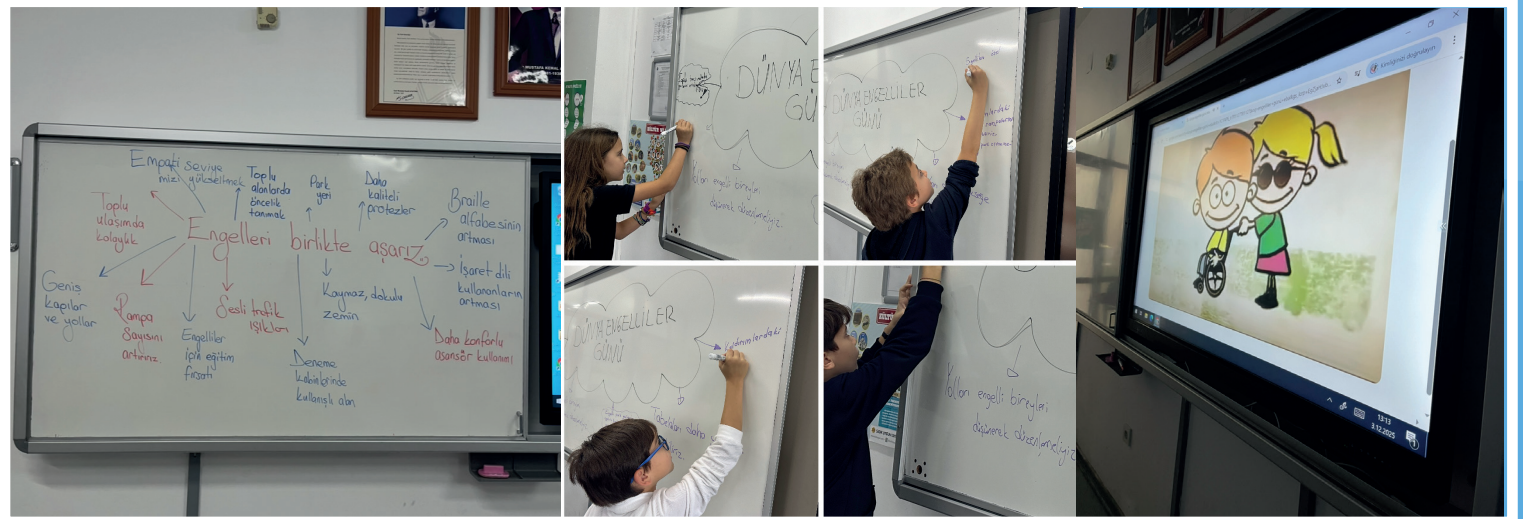 MUSTAFA KEMAL
Empati seviye
mizi yükseltmek
Toplu
alanlarda
öncelik
tanımak
Park
yeri
Daha
kaliteli
protezler
Braille
alfabesinin
artması
Toplu
ulaşımda
kolaylık
Engelleri birlikte aşarız
İşaret dili
kullananların
artması
Geniş
kapılar
ve yollar
Rampa
sayısını
artırırız.
Engelliler
için eğitim
fırsatı
Sesli trafik
ışıkları
Kaymaz, dokulu
zemin
Deneme
kabinlerinde
kullanışlı alan
Daha konforlu
asansör kullanımı
DÜNYA E
GÜ
Yolları engelli bireyleri
düşünerek düzenlemeliyiz.
DÜNYA ENGELLİLER
GÜNÜ
DÜNYA ENGELLİLER
GÜNÜ
Kaldırımlardaki
daha
Yolları engelli bireyleri
düşünerek düzenlemeliyiz
Kimliğinizi doğrulayın
13:13
3.12.2025